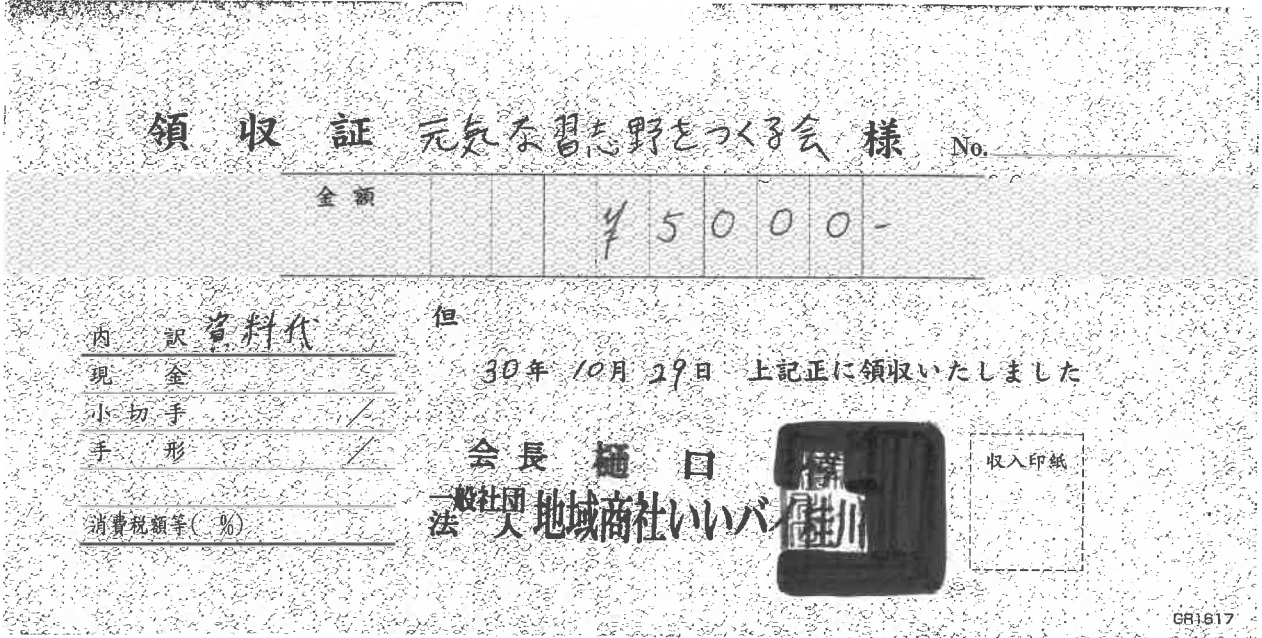 領収証 元気な習志野をつくる会 様 No.
金額 ¥5000-
但
内訳 資料代
現金
小切手 /
手形 /
消費税額等( %)
30年 10月 29日 上記正に領収いたしました
会長 樋口 博
一般社団法人 地域商社いいバイ桂川
収入印紙
GR1617